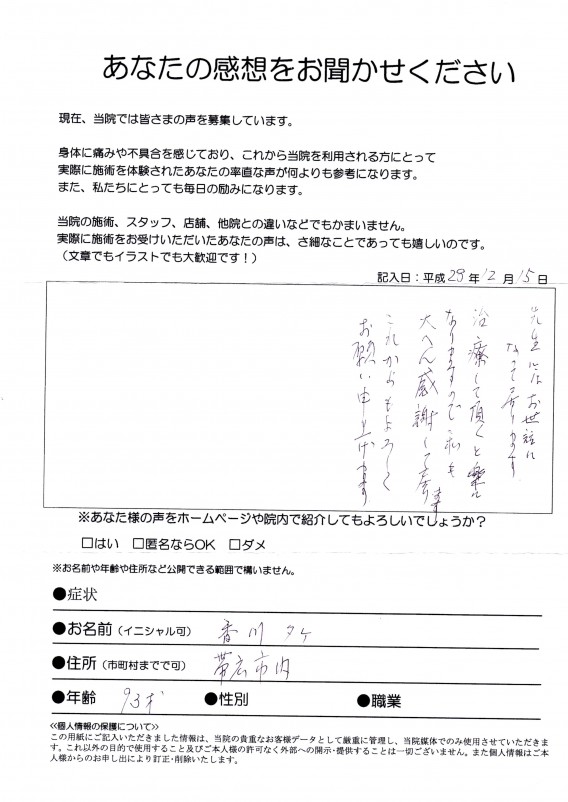 あなたの感想をお聞かせください
現在、当院では皆さまの声を募集しています。
身体に痛みや不具合を感じており、これから当院を利用される方にとって
実際に施術を体験されたあなたの率直な声が何よりも参考になります。
また、私たちにとっても毎日の励みになります。
当院の施術、スタッフ、店舗、他院との違いなどでもかまいません。
実際に施術をお受けいただいたあなたの声は、さ細なことであっても嬉しいのです。
（文章でもイラストでも大歓迎です！）
記入日：平成29年12月15日
先生にはお世話に
なって居ります
治療して頂くと楽に
なりますので 私も
大へん感謝して居
ます
これからもよろしく
お願い申し上げます
※あなた様の声をホームページや院内で紹介してもよろしいでしょうか？
□はい □匿名ならOK □ダメ
※お名前や年齢や住所など公開できる範囲で構いません。
●症状
●お名前（イニシャル可） 香川 タケ
●住所（市町村までで可） 帯広市内
●年齢 93才 ●性別 ●職業
≪個人情報の保護について≫
この用紙にご記入いただきました情報は、当院の貴重なお客様データとして厳重に管理し、当院媒体でのみ使用させていただきま
す。これ以外の目的で使用すること及びご本人様の許可なく外部への開示・提供することは一切ございません。また個人情報はご本
人様からのお申し出により訂正・削除いたします。